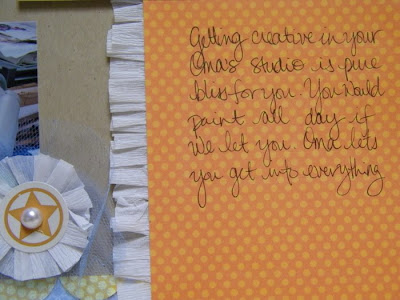 Getting creative in your
Oma's studio is pure
bliss for you. You would
paint all day if
we let you. Oma lets
you get into everything